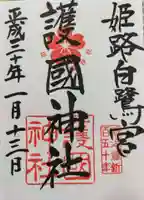 姫路白鷺宮
護國神社
平成二十年一月十三日